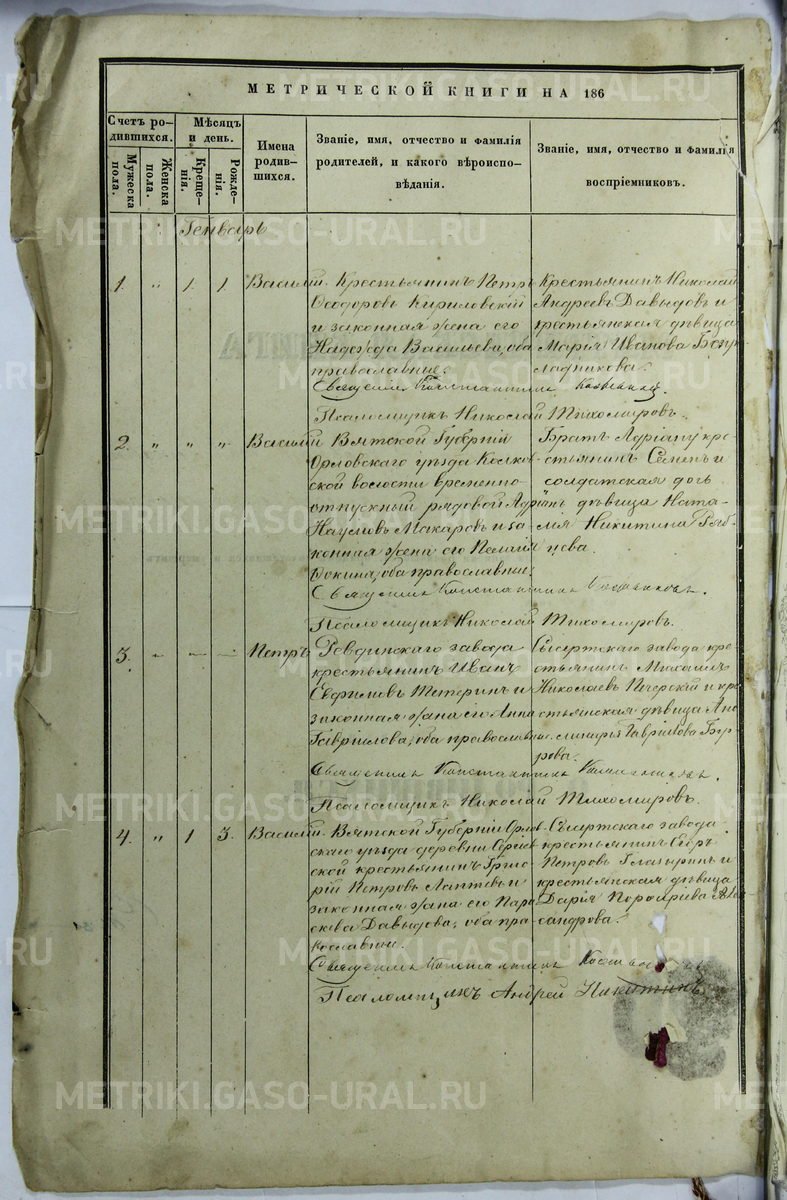 МЕТРИЧЕСКОЙ КНИГИ НА 186
Счетъ родившихся.
Мужеска пола.
Женска пола.
Мѣсяцъ и день.
Крещенія.
Рожденія.
Имена родившихся.
Званіе, имя, отчество и фамилія родителей, и какого вѣроисповѣданія.
Званіе, имя, отчество и фамилія воспріемниковъ.
Генварь
1. " 1 1 Василій.
Крестьянинъ Петръ
Ѳеодоровъ Кириловскій
и законная жена его
Надежда Васильева, оба
православные.
Крестьянинъ Николай
Андреевъ Давыдовъ и
крестьянская дѣвица
Марія Иванова
Священникъ Константинъ
Псаломщикъ Николай Тихомировъ.
2. " " " Василій
Вятской Губерніи
Орловскаго уѣзда
ской волости временно-
отпускный рядовой Адріанъ
Наумовъ Макаровъ и за-
конная жена его Пелагія
оба православные.
Братъ Адріану кре-
стьянинъ Семенъ и
солдатская дочь
дѣвица Ната-
лія Никитина Ряб-
цева.
Священникъ Константинъ
Псаломщикъ Николай Тихомировъ.
3. – – – Петръ
Ревдинскаго завода
крестьянинъ Иванъ
Евфимовъ Тетеринъ и
законная жена его Анна
Гавріилова, оба православные.
Сысертскаго завода кре-
стьянинъ Михаилъ
Николаевъ Печерскій и кре-
стьянская дѣвица
Гаврилова
Священникъ Константинъ
Псаломщикъ Николай Тихомировъ.
4. " 1 3. Василій.
Вятской Губерніи Орлов-
скаго уѣзда деревни
ской крестьянинъ Григо-
рій Петровъ Лаптевъ и
законная жена его Пара-
скева Давыдова, оба пра-
вославные.
Сысертскаго завода
крестьянинъ Егоръ
Петровъ и
крестьянская дѣвица
Дарія Порфирьева Алек-
сандрова.
Священникъ Константинъ
Псаломщикъ Андрей Никитинъ
METRIKI.GASO-URAL.RU